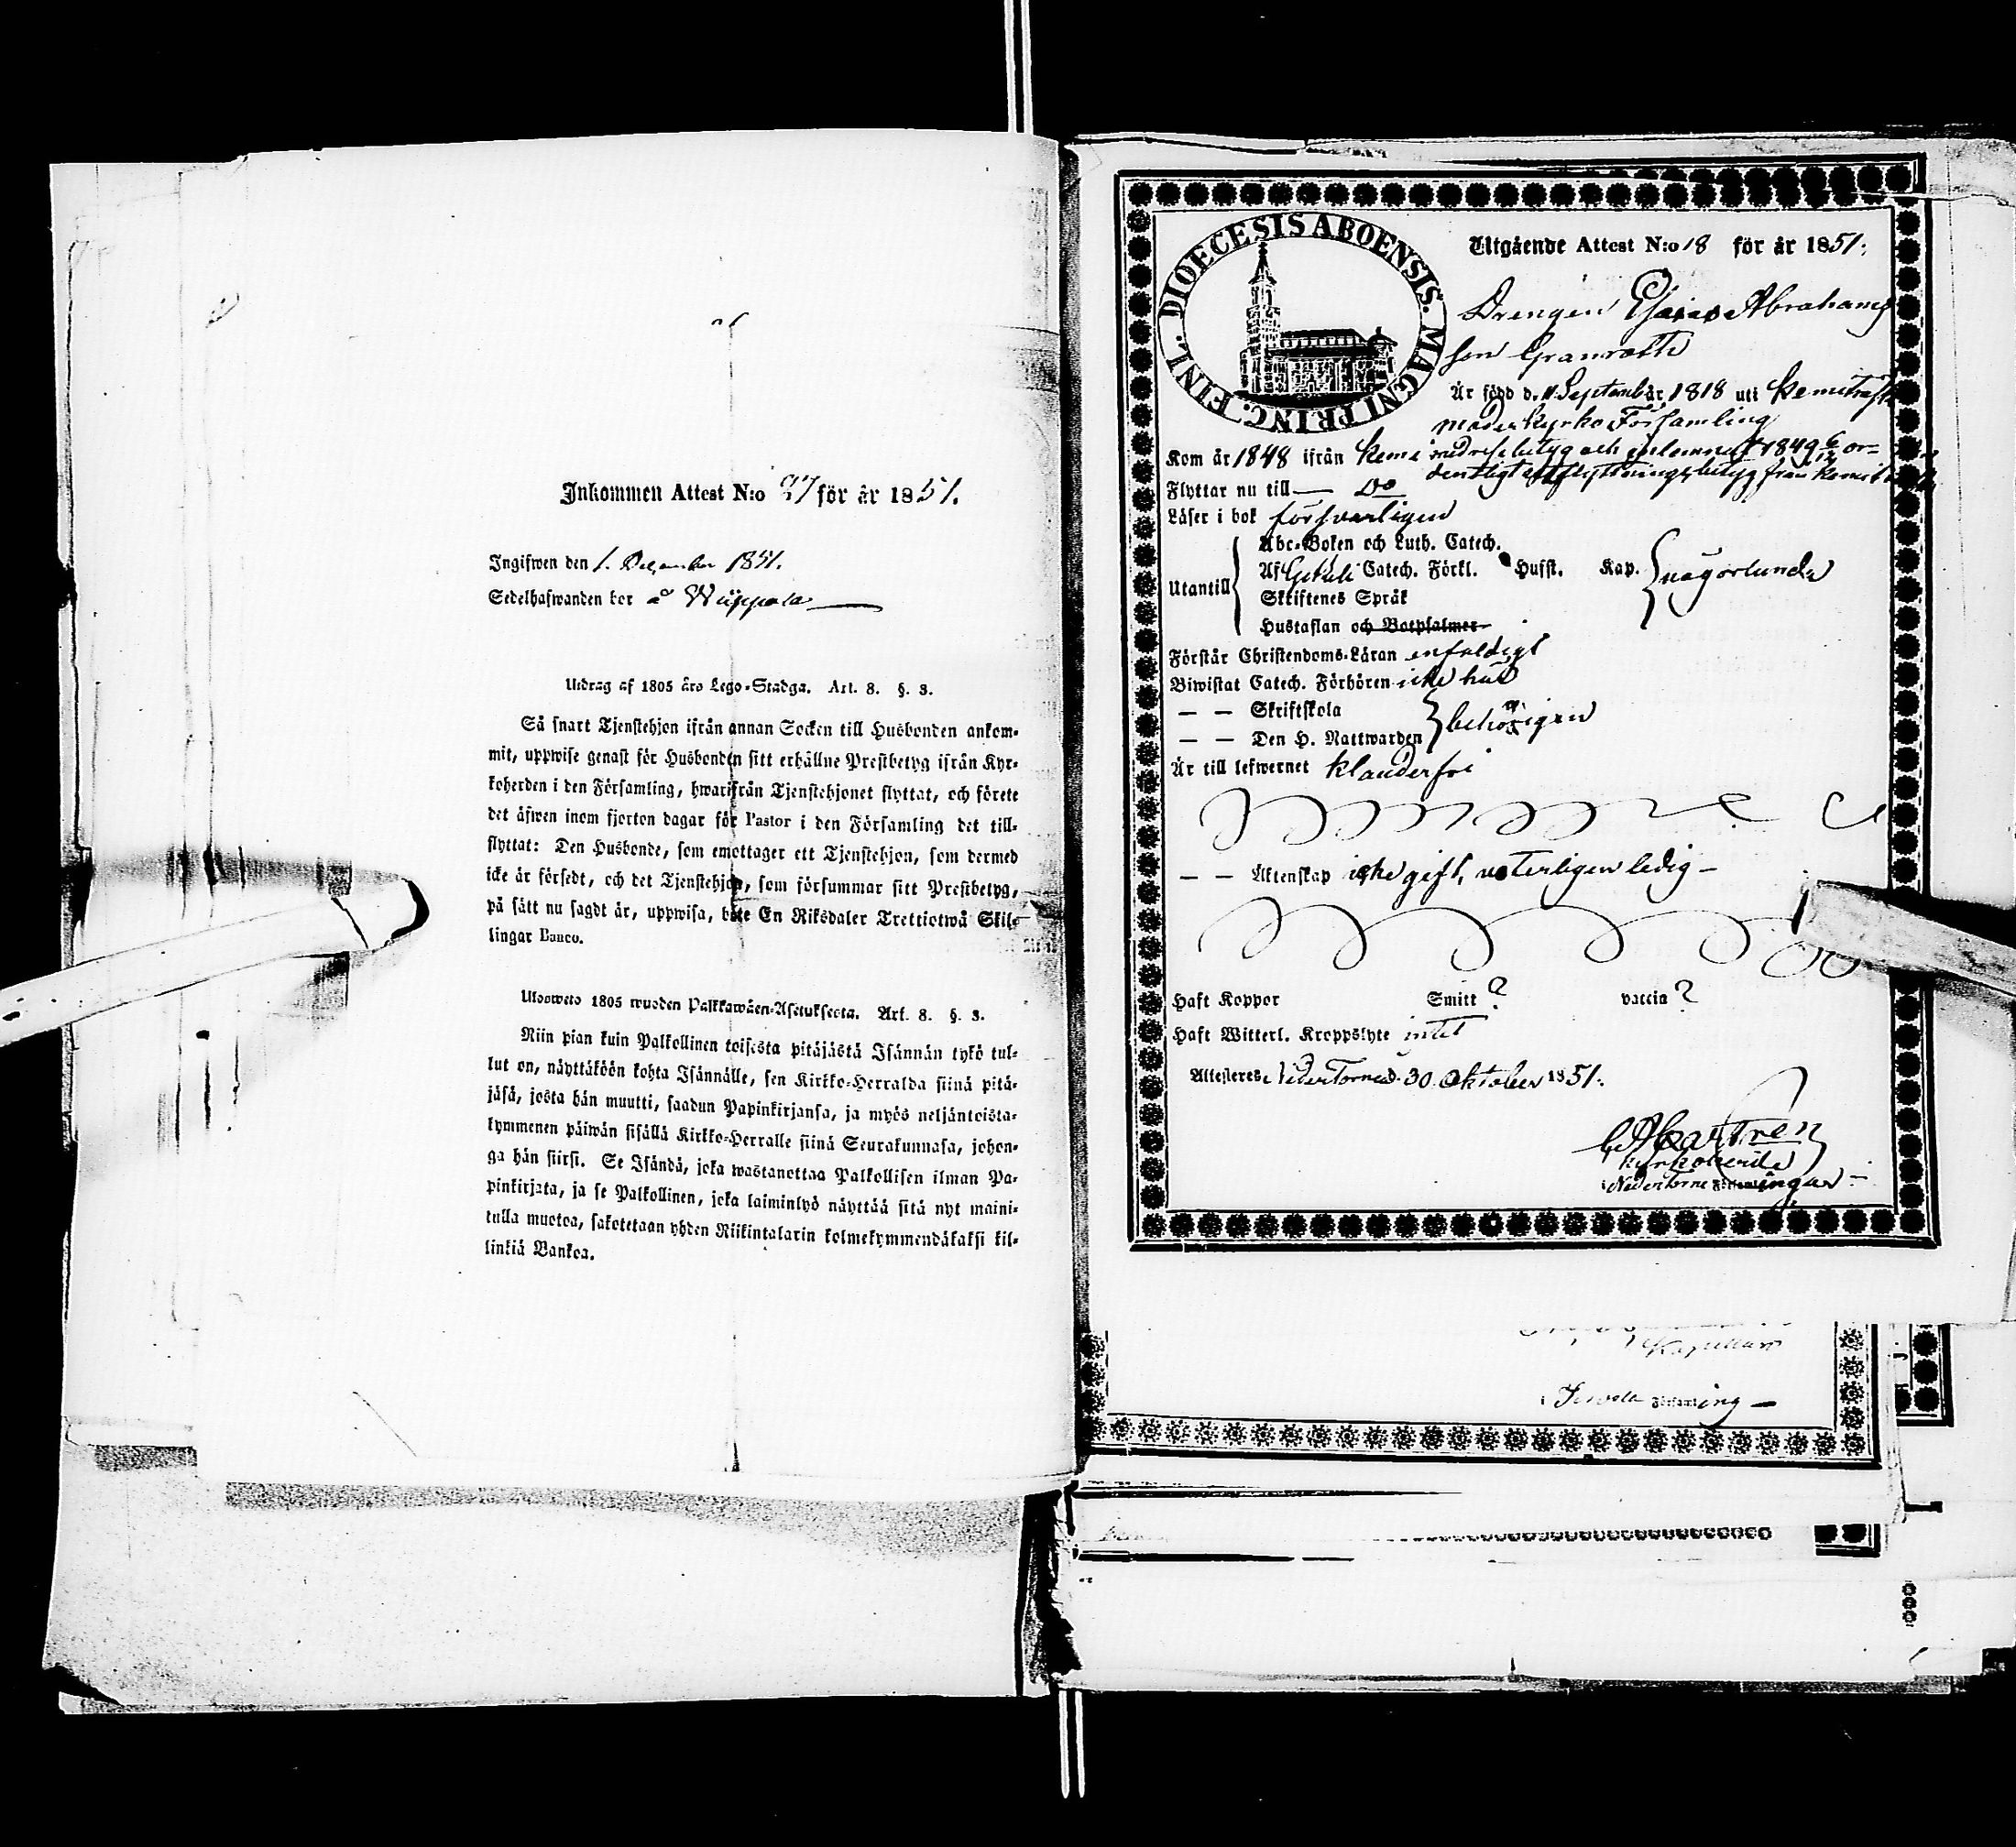 Inkommen Attest N:o 27 för år 1851.
Ingifwen den 1. December 1851.
Sedelhafwanden bor å
Utdrag af 1805 års Lego-Stadga. Art. 8. §. 3.
Så snart Tjenstehjon ifrån annan Socken till Husbonden ankom-
mit, uppwise genast för Husbonden sitt erhållne Prestbetyg ifrån Kyr-
koherden i den Församling, hwarifrån Tjenstehjonet flyttat, och förete
det äfwen inom fjorton dagar för Pastor i den Församling det till-
flyttat: Den Husbonde, som emottager ett Tjenstehjon, som dermed
icke är försedt, och det Tjenstehjon, som försummar sitt Prestbetyg,
på sätt nu sagdt är, uppwisa, böte En Riksdaler Trettiotwå Skil-
lingar Banco.
Ulosweto 1805 wuoden Palkkawäen-Asetuksesta. Art. 8. §. 3.
Niin pian kuin Palkollinen toisesta pitäjästä Isännän tykö tul-
lut on, näyttäköön kohta Isännälle, sen Kirkko-Herralda siinä pitä-
jäsä, josta hän muutti, saadun Papinkirjansa, ja myös neljäntoista-
kymmenen päiwän sisällä Kirkko-Herralle siinä Seurakunnasa, johon-
ga hän siirsi. Se Isändä, joka wastanottaa Palkollisen ilman Pa-
pinkirjata, ja se Palkollinen, joka laiminlyö näyttää sitä nyt maini-
tulla muotoa, sakotetaan yhden Riikintalarin kolmekymmendäkaksi kil-
linkiä Bankoa.
DIOECESIS ABOENSIS. MAGNI PRINC. FINL.
Utgående Attest N:o 18 för år 1851.
Drengen Esaias Abrahams
son Granroth
Är född d. 11 September 1818 uti Kemiträsk
moderkyrko Församling
Kom år 1848 ifrån Kemi med resebetyg och inlemnat 1849 6/12 or-
dentligt utflyttningsbetyg från
Flyttar nu till — Do
Läser i bok försvarligen
Utantill
Abc-Boken och Luth. Catech.
Af Catech. Förkl. Husst. Kap.
någorlunda
Skriftenes Språk
Hustaflan och Botpsalmer
Förstår Christendoms-Läran enfaldigt
Biwistat Catech. Förhören icke här
— — Skriftskola
— — Den H. Nattwarden behörigen
Är till lefwernet klanderfri
— — Äktenskap icke gift, veterligen ledig —
Haft Koppor Smitt ? vaccin ?
Haft Witterl. Kroppslyte intet
Attesteres. Neder Torneå d. 30 Oktober 1851.
Castren
Kyrkoherde
Neder Torne Församlingar —
Kapellan
Församling —